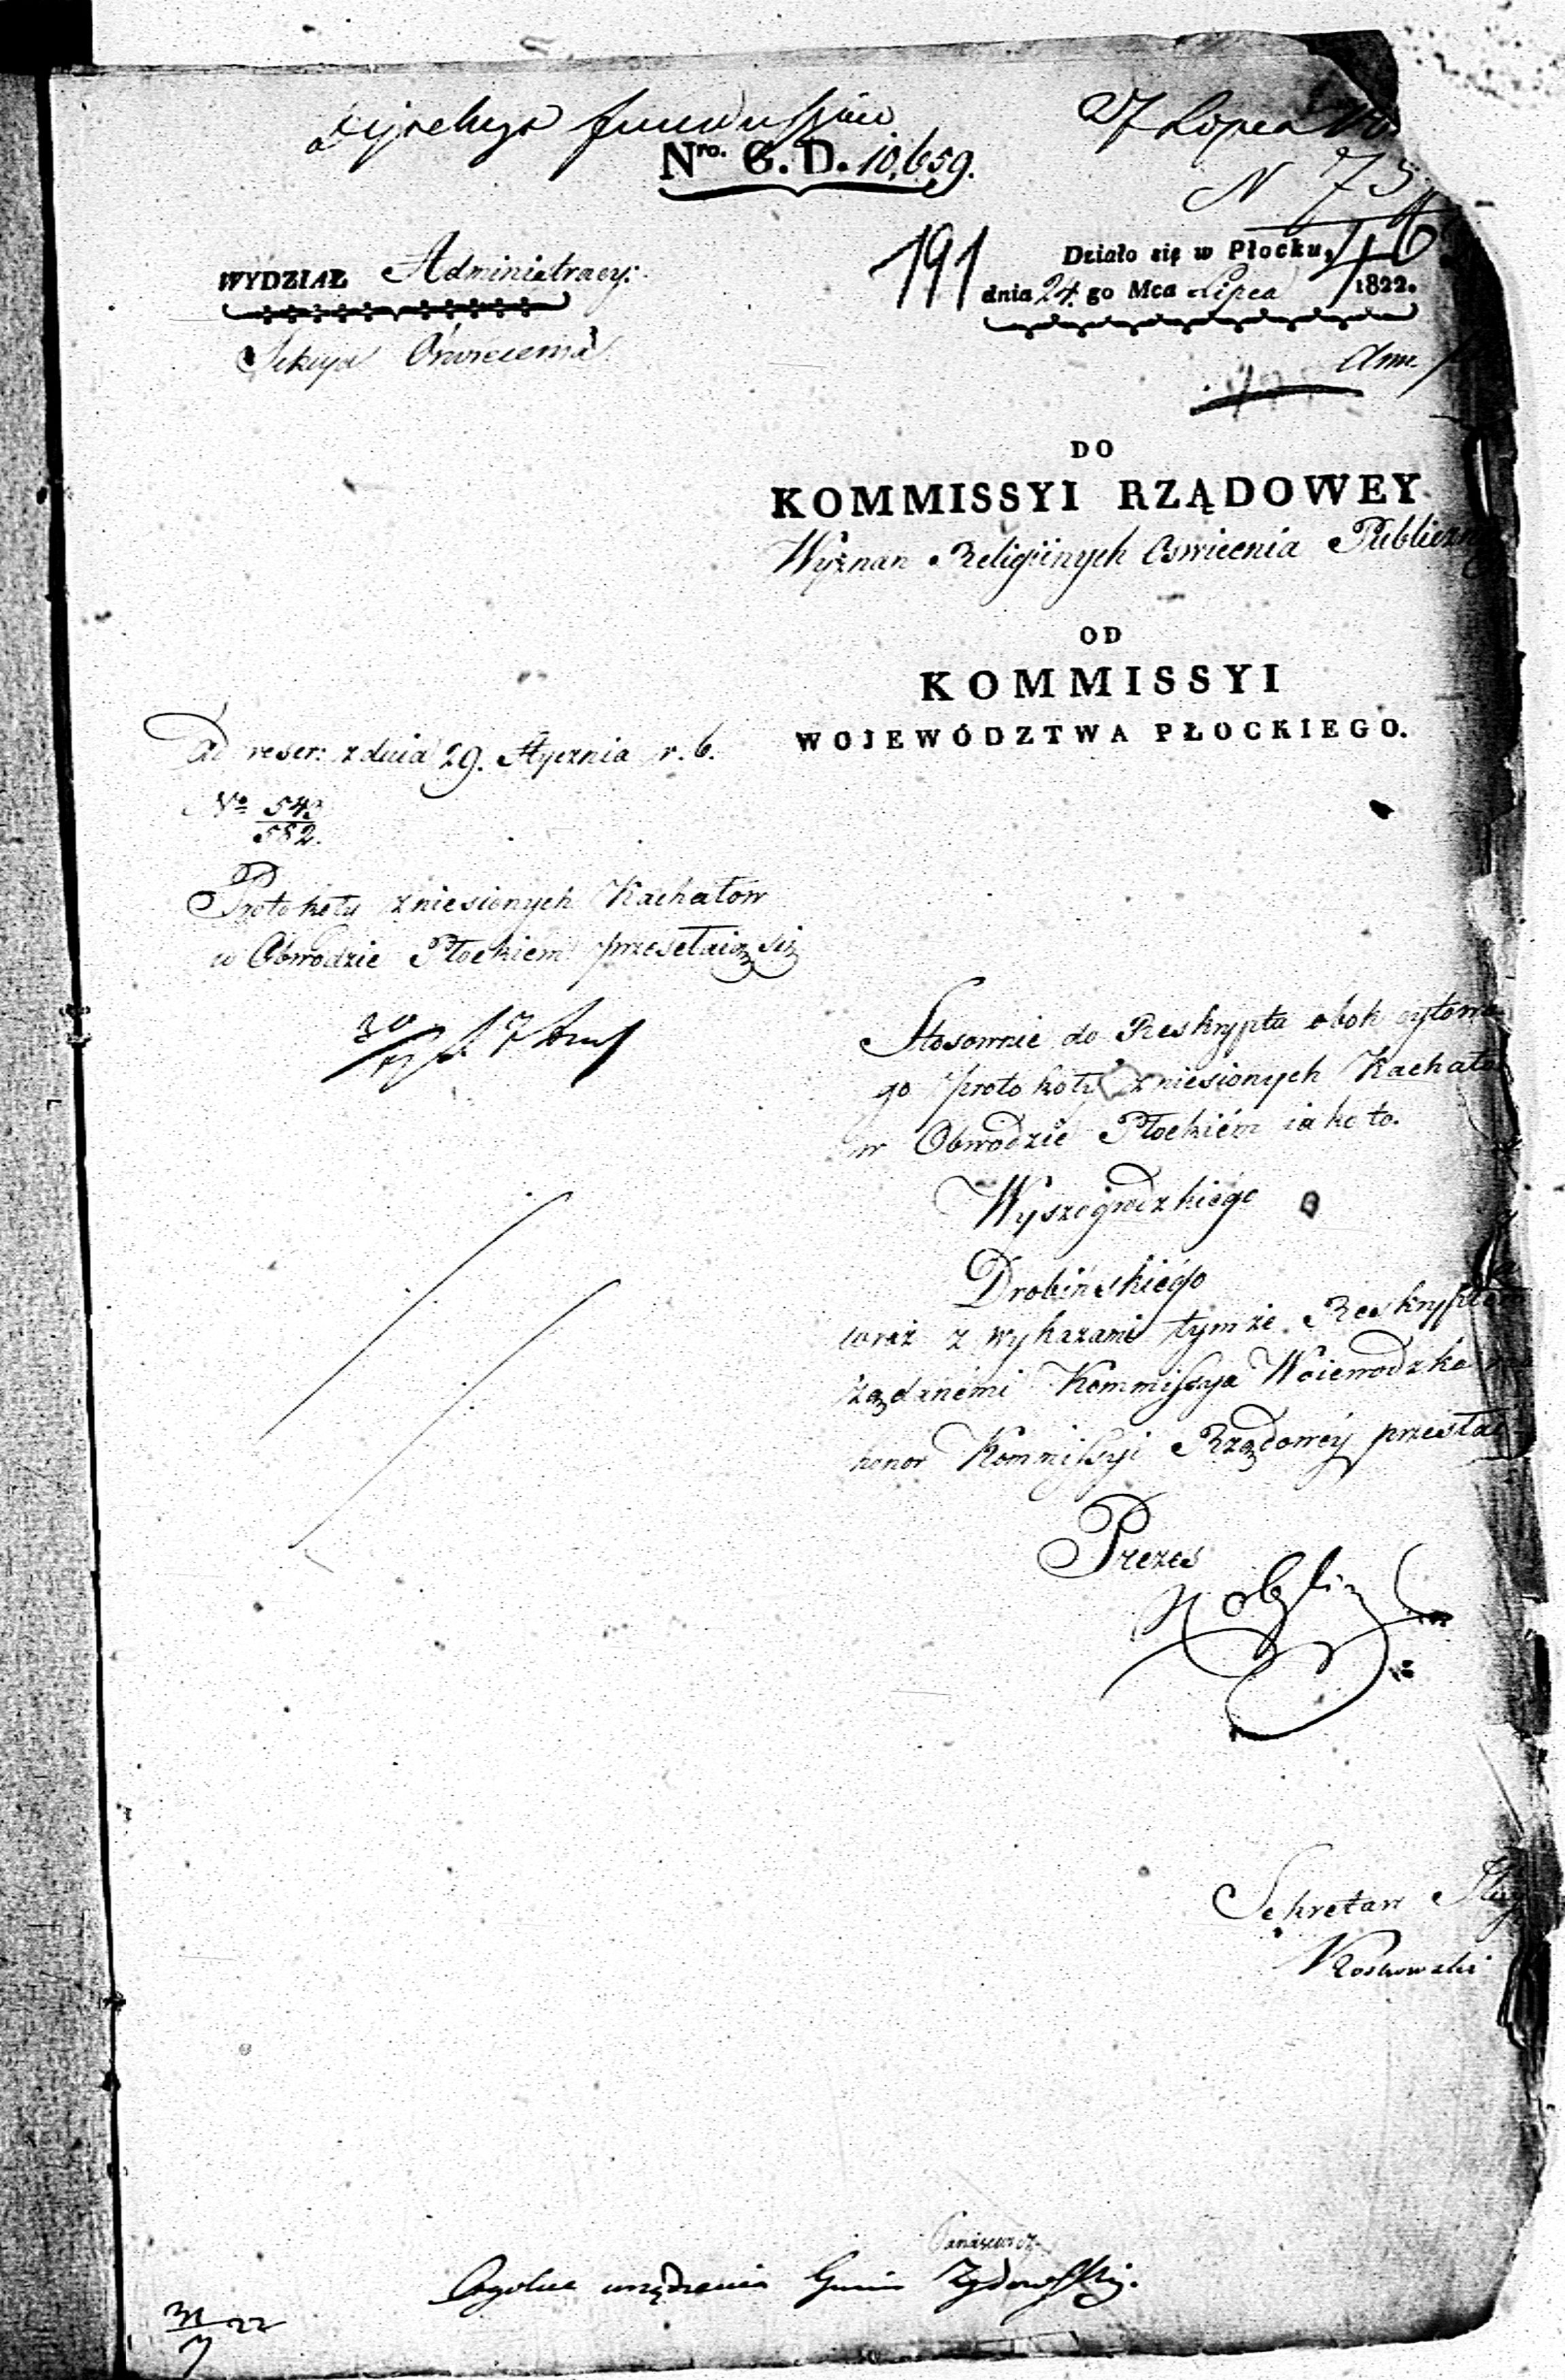 Dyrekcya funduszów
27 Lipca
Nro. G. D. 10,659.
N 75
191
Działo się w Płocku,
dnia 24. go Mca Lipca 1822.
WYDZIAŁ Administracy:
Sekcya Oświecenia
Ann.
DO
KOMMISSYI RZĄDOWEY
Wyznan Religiinych Oswiecnia Publiczn
OD
KOMMISSYI
WOJEWÓDZTWA PŁOCKIEGO.
Ad reser: z dnia 29. Stycznia r. b.
No 543
582.
Protokoły zniesionych Kachałow
w Obwodzie Płockiem przesełaią się
Stosownie do Reskryptu obok cytowa
go protokoły zniesionych Kachało
w Obwodzie Płockiém iako to.
Wyszogrodzkiego
Drobińskiégo
wraz z wykazami tymże Reskryptem
żądanémi Kommissya Woiewodzka ma
honor Kommissyi Rządowéy przesłać
Prezes
Sekretarz
Ogólne urządzenia Gmin Żydowskich.
31 22
7